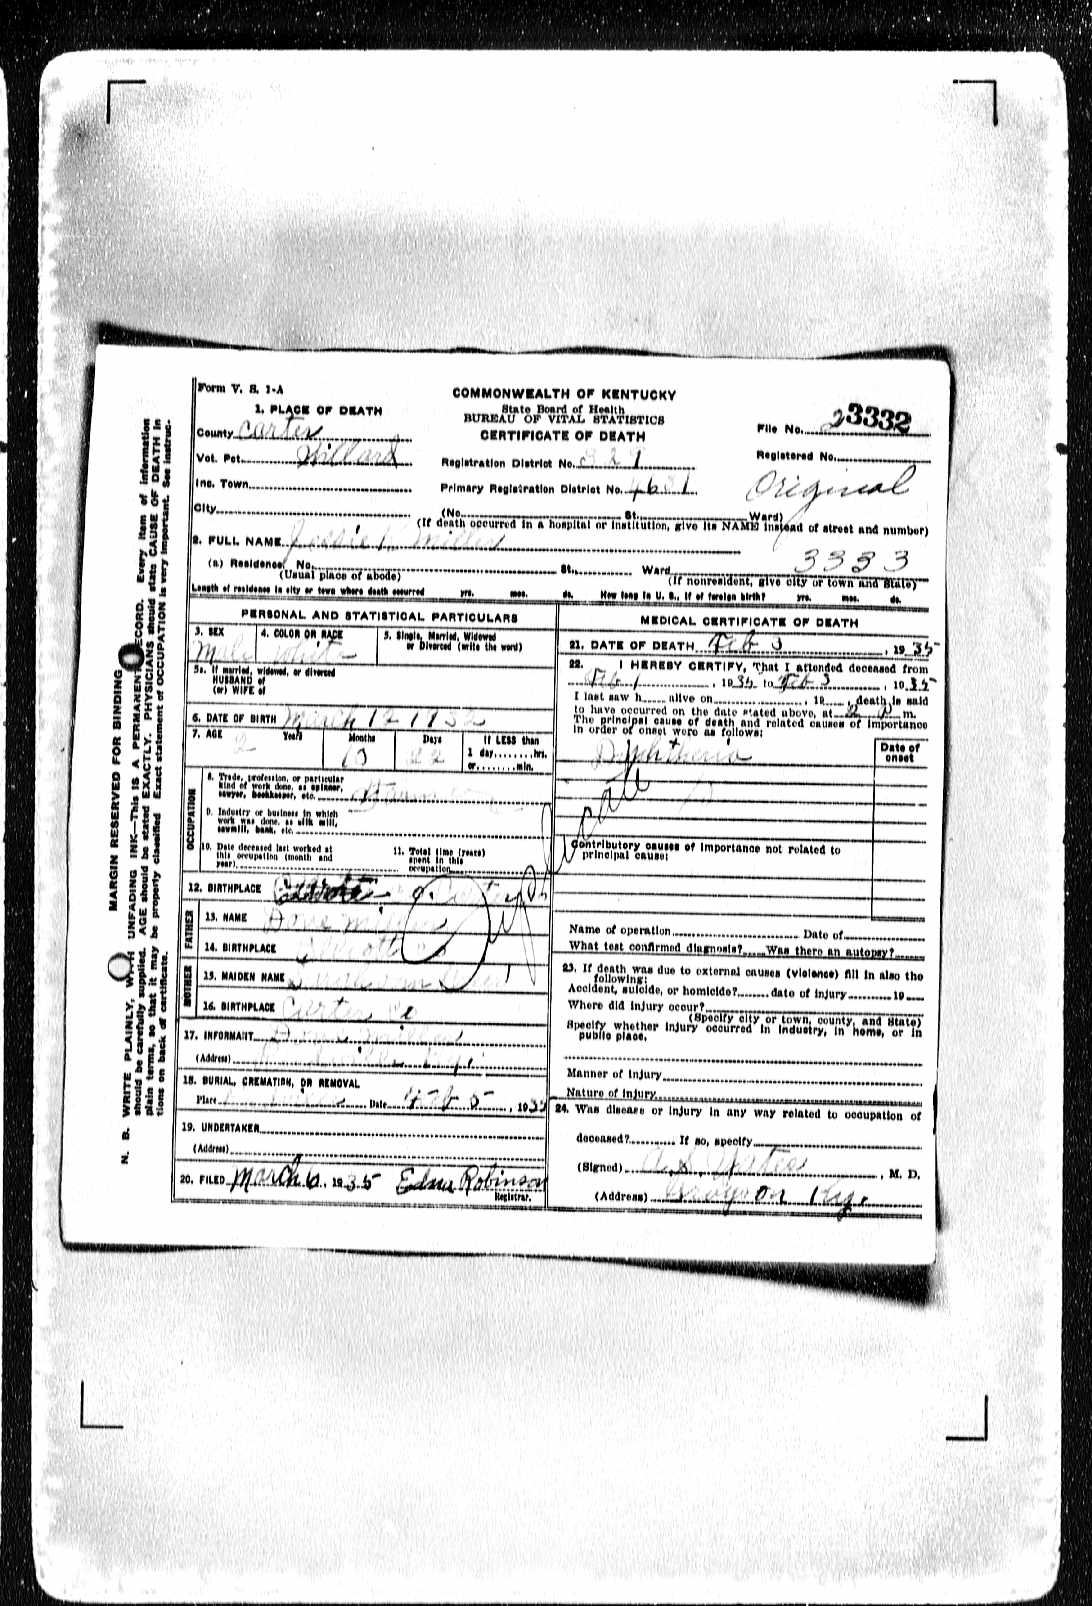 Form V. S. 1-A
COMMONWEALTH OF KENTUCKY
State Board of Health
BUREAU OF VITAL STATISTICS
CERTIFICATE OF DEATH
File No. 23332
Registered No.
Original
3333
1. PLACE OF DEATH
County Carter
Vot. Pct. Willard
Inc. Town
City
Registration District No. 321
Primary Registration District No.
(No. St. Ward)
(If death occurred in a hospital or institution, give its NAME instead of street and number)
2. FULL NAME Jessie Miller
(a) Residence, No. St., Ward
(Usual place of abode) (If nonresident, give city or town and State)
Length of residence in city or town where death occurred yrs. mos. ds. How long in U. S., if of foreign birth? yrs. mos. ds.
PERSONAL AND STATISTICAL PARTICULARS
3. SEX 4. COLOR OR RACE 5. Single, Married, Widowed
or Divorced (write the word)
Male Whit
5a. If married, widowed, or divorced
HUSBAND of
(or) WIFE of
6. DATE OF BIRTH March 12 1932
7. AGE Years Months Days If LESS than
2 10 22 1 day, hrs.
or min.
OCCUPATION
8. Trade, profession, or particular
kind of work done, as spinner,
sawyer, bookkeeper, etc.
9. Industry or business in which
work was done, as silk mill,
sawmill, bank, etc.
10. Date deceased last worked at
this occupation (month and
year)
11. Total time (years)
spent in this
occupation
12. BIRTHPLACE
FATHER
13. NAME
14. BIRTHPLACE Elliott
MOTHER
15. MAIDEN NAME
16. BIRTHPLACE Carter
17. INFORMANT
(Address) Ky.
18. BURIAL, CREMATION, OR REMOVAL
Place Date Feb 5, 1935
19. UNDERTAKER
(Address)
20. FILED March 6, 1935 Edna Robinson
Registrar.
Duplicate
MEDICAL CERTIFICATE OF DEATH
21. DATE OF DEATH Feb 3, 1935
22. I HEREBY CERTIFY, That I attended deceased from
Feb 1, 1935 to Feb 3, 1935
I last saw h alive on , 19 death is said
to have occurred on the date stated above, at 2 P m.
The principal cause of death and related causes of importance
in order of onset were as follows:
Date of
onset
Diphtheria
Contributory causes of importance not related to
principal cause:
Name of operation Date of
What test confirmed diagnosis? Was there an autopsy?
23. If death was due to external causes (violence) fill in also the
following:
Accident, suicide, or homicide? date of injury 19
Where did injury occur?
(Specify city or town, county, and State)
Specify whether injury occurred in industry, in home, or in
public place.
Manner of injury
Nature of injury
24. Was disease or injury in any way related to occupation of
deceased? If so, specify
(Signed) , M. D.
(Address) Grayson Ky.
MARGIN RESERVED FOR BINDING
N. B. WRITE PLAINLY, WITH UNFADING INK—THIS IS A PERMANENT RECORD. Every item of information
should be carefully supplied. AGE should be stated EXACTLY. PHYSICIANS should state CAUSE OF DEATH in
plain terms, so that it may be properly classified. Exact statement of OCCUPATION is very important. See instruc-
tions on back of certificate.